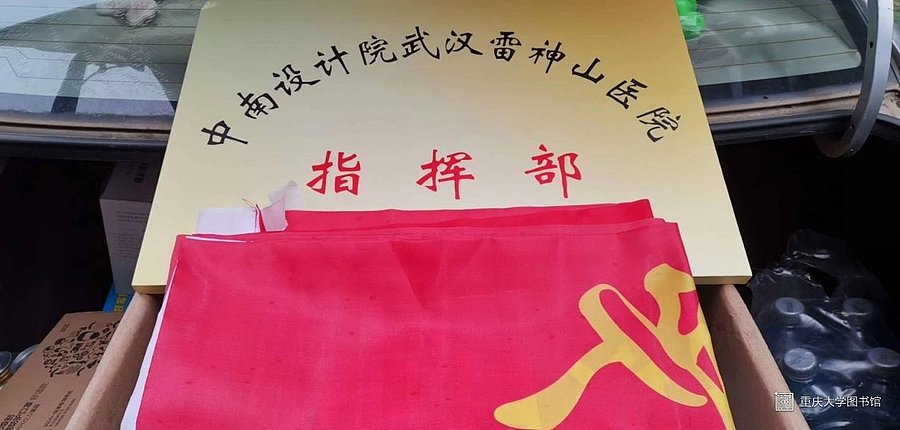 中南设计院武汉雷神山医院
指挥部
重庆大学图书馆